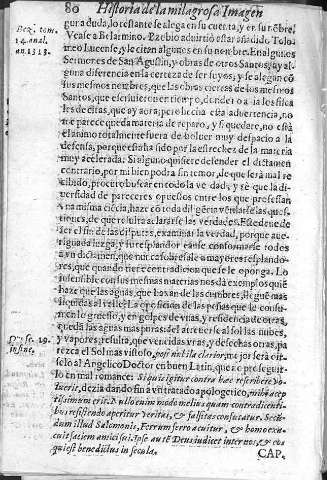 80 Historia de la milagrosa Imagen
gura duda, lo restante se alega en su cuenta, y en su nõbre.
Vease a Belarmino. Pzebio advirtiò estar añadido. Tolo-
meo Lucense, y le citan algunos en su nombre. En algunos
Sermones de San Agustin, y obras de otros Santos, ay al-
guna diferencia en la certeza de ser suyos; y se alegan co
mo suyas por la razon, que las obras ciertas de los mesmos
Santos, que escrivieron en tiempo, den
de estas, que ay aora; pero hecha esta advertencia, no
me parece queda materia de reparo, y si quedare, no està
el animo totalmente fuera de bolver muy despacio a la
defensa, porque esta ha sido por la estrechez de la materia
muy acelerada: Si alguno quisiere defender el dictamen
contrario, por mi bien podrà sin temor, de que serà mal re
cibido, procuro buscar en todo la verdad, y sè que la di-
versidad de pareceres opuestos entre los que professan
una misma ciencia, haze cõ toda diligencia
tiones, de que resulta aclararse las verdades. Este deve de
ser el fin de las disputas, examinar la verdad, porque ave-
riguada luzga, y su resplandor cause conformarse todos
a un dictamen, que no a mayores resplando-
res, que quando tiene contradicion que se le oponga. Lo
insensible con sus mesmas materias nos dà exemplos
haze que las aguas, que bavan de las cumbres, lleguẽ mas
al valle: La oposicion de las peñas que le consti-
en lo gruesso, y en golpes de vnas, y residencia de otras,
queda las aguas mas puras: del atreverse al Sol las nubes,
y vapores, resulta, que vencidas vnas, y desechas otras, pa
rezca el Sol mas vistoso, post nubila clarior, mejor serà oir-
selo al Angelico Doctor en buen Latin, que no proseguir-
lo en mal romance: Si quis igitur contra hæc rescribere vo-
luerit, dezia dando fin a vn tratado apologico, mihi accep
tissimum erit. Nullo enim modo melius quam contradicenti-
bus resistendo aperitur veritas, & falsitas confutatur. Secun-
dum illud Salomonis, Ferrum ferro acuitur, & homo exa-
cuit faciem amici sui. Ipse autẽ Deus iudicet inter nos, & eos
qui est benedictus in secula. CAP.
Bez. tom.
14. anal.
an. 1313.
19.
in fine.